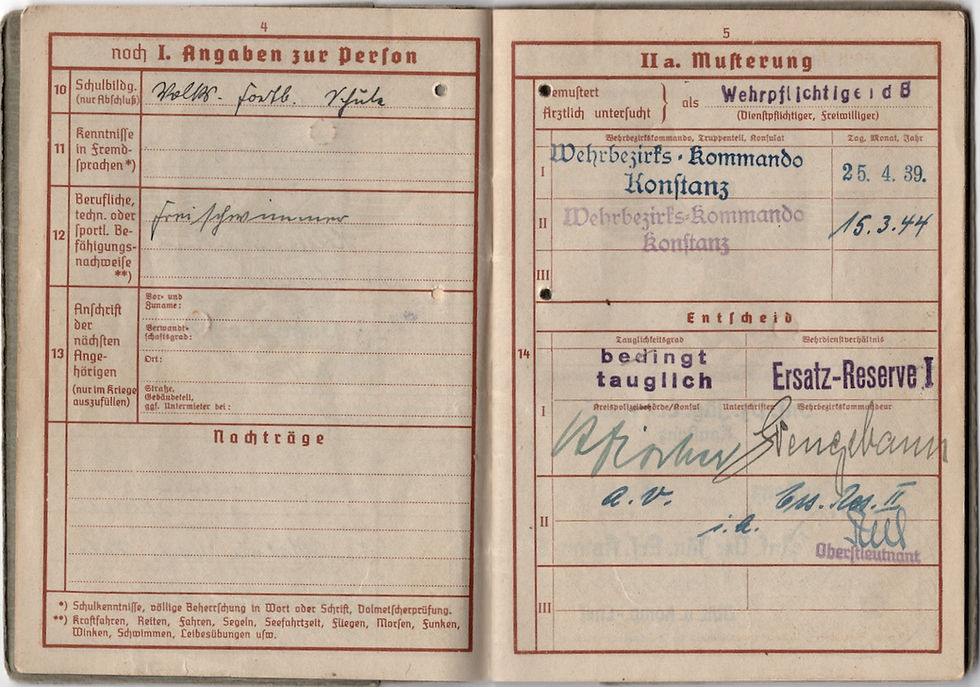 4
noch I. Angaben zur Person
10 Schulbildg.
(nur Abschluß)
Volks- Fortb. Schule
11 Kenntnisse
in Fremd-
sprachen*)
12 Berufliche,
techn. oder
sportl. Be-
fähigungs-
nachweise
**)
Freischwimmer
13 Anschrift
der
nächsten
Ange-
hörigen
(nur im Kriege
auszufüllen)
Vor- und
Zuname:
Verwandt-
schaftsgrad:
Ort:
Straße,
Gebäudeteil,
ggf. Untermieter bei:
Nachträge
*) Schulkenntnisse, völlige Beherrschung in Wort oder Schrift, Dolmetscherprüfung.
**) Kraftfahren, Reiten, Fahren, Segeln, Seefahrtzeit, Fliegen, Morsen, Funken,
Winken, Schwimmen, Leibesübungen usw.
5
II a. Musterung
Gemustert
Ärztlich untersucht } als Wehrpflichtiger d B
(Dienstpflichtiger, Freiwilliger)
Wehrbezirkskommando, Truppenteil, Konsulat Tag, Monat, Jahr
I Wehrbezirks-Kommando
Konstanz 25. 4. 39.
II Wehrbezirks-Kommando
Konstanz 15.3.44
III
Entscheid
14
Tauglichkeitsgrad Wehrdienstverhältnis
I bedingt
tauglich Ersatz-Reserve I
Kreispolizeibehörde/Konsul Unterschriften Wehrbezirkskommandeur
II a. v. Ers. Res. II
i. A.
Oberstleutnant
III